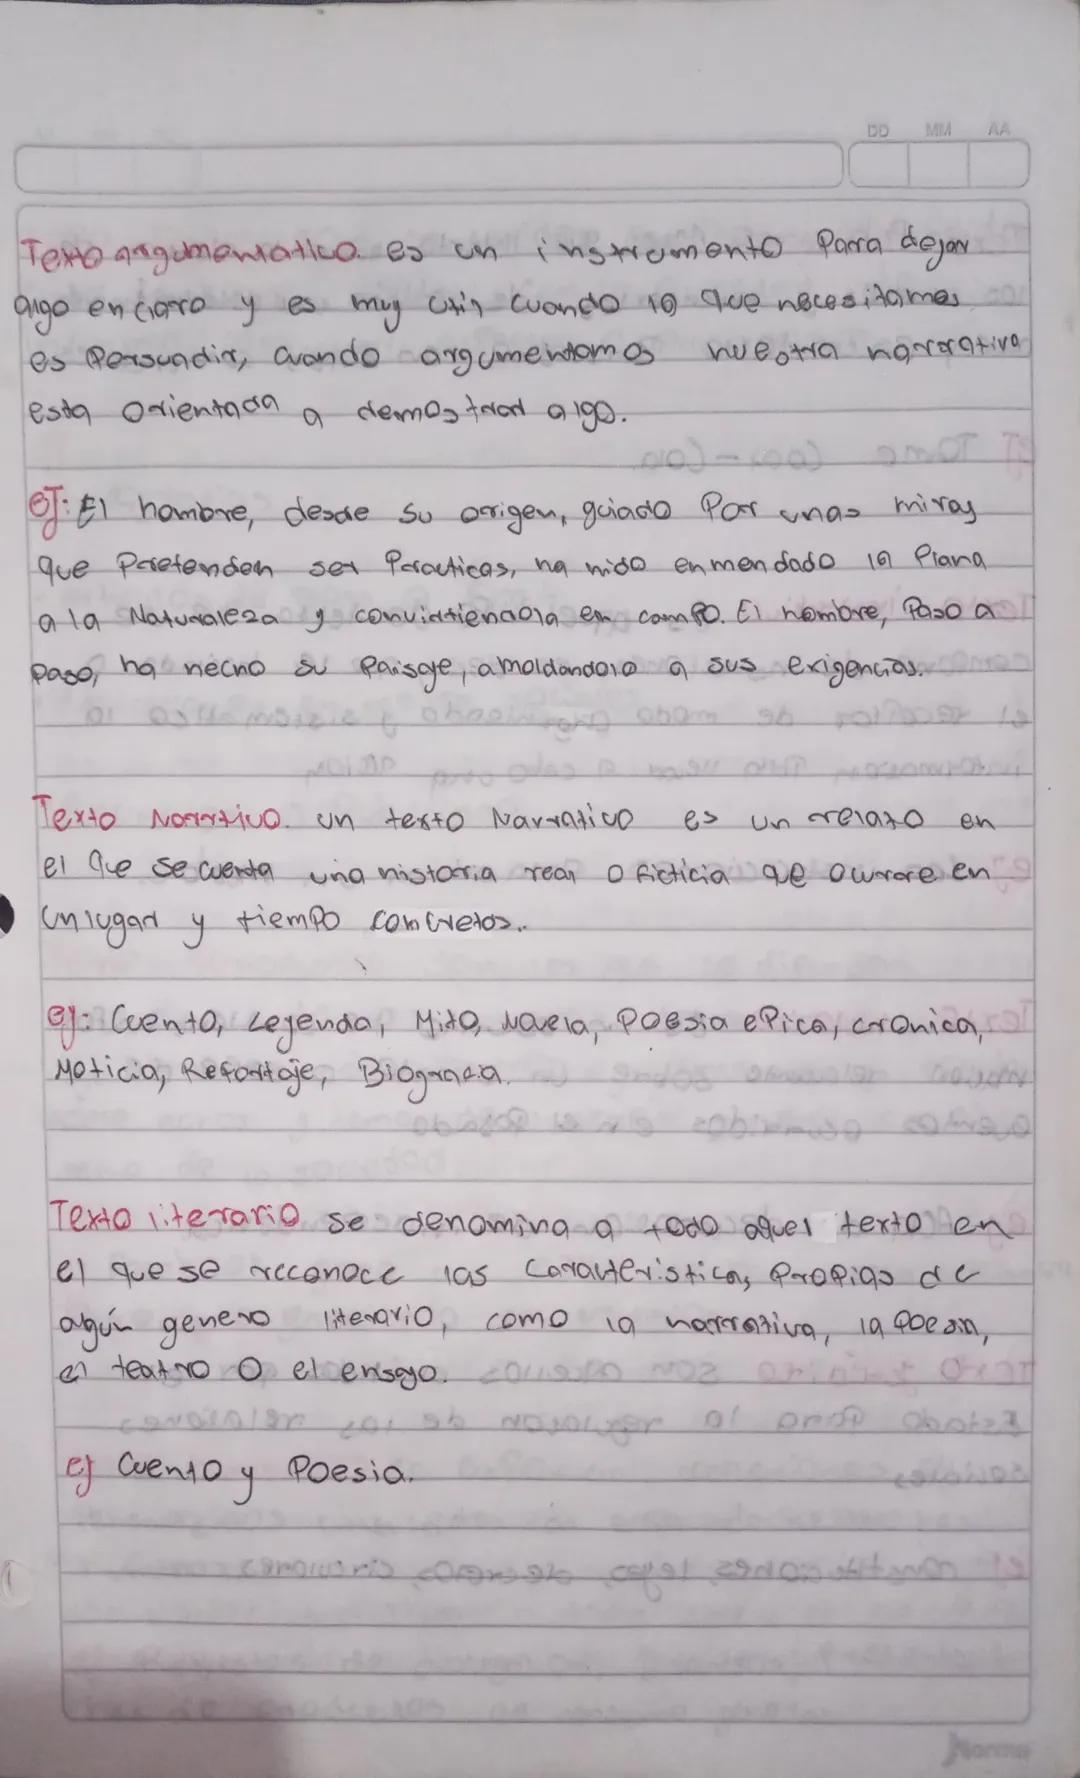 DD MM AA
Texto argumentatico. es un instrumento Para dejar
algo en claro y es muy util cuando lo que necesitamos
es Persuadir, cuando argumentamos nuestra narrativa
esta orientada a demostrar algo.
ej: El hombre, desde su origen, guiado Por unas miras
que Pretenden ser Practicas, ha enmendado la Plana
a la Naturaleza y convirtiendola en campo. El hombre, Paso a
paso, ha hecho su Paisaje, amoldandolo a sus exigencias.
Texto Narrtivo. un texto Narratico es un relato en
el que se cuenta una historia real o ficticia que ocurre en
un lugar y tiempo concretos..
ej: Cuento, Leyenda, Mito, Novela, Poesia ePica, cronica,
Noticia, Reportaje, Biografia.
Texto literario se denomina a todo aquel texto en
el que se reconoce las caracteristicas Propias de
algún genero literario, como la narrativa, la Poesia,
el teatro o el ensayo.
ej Cuento y Poesia.
Norma